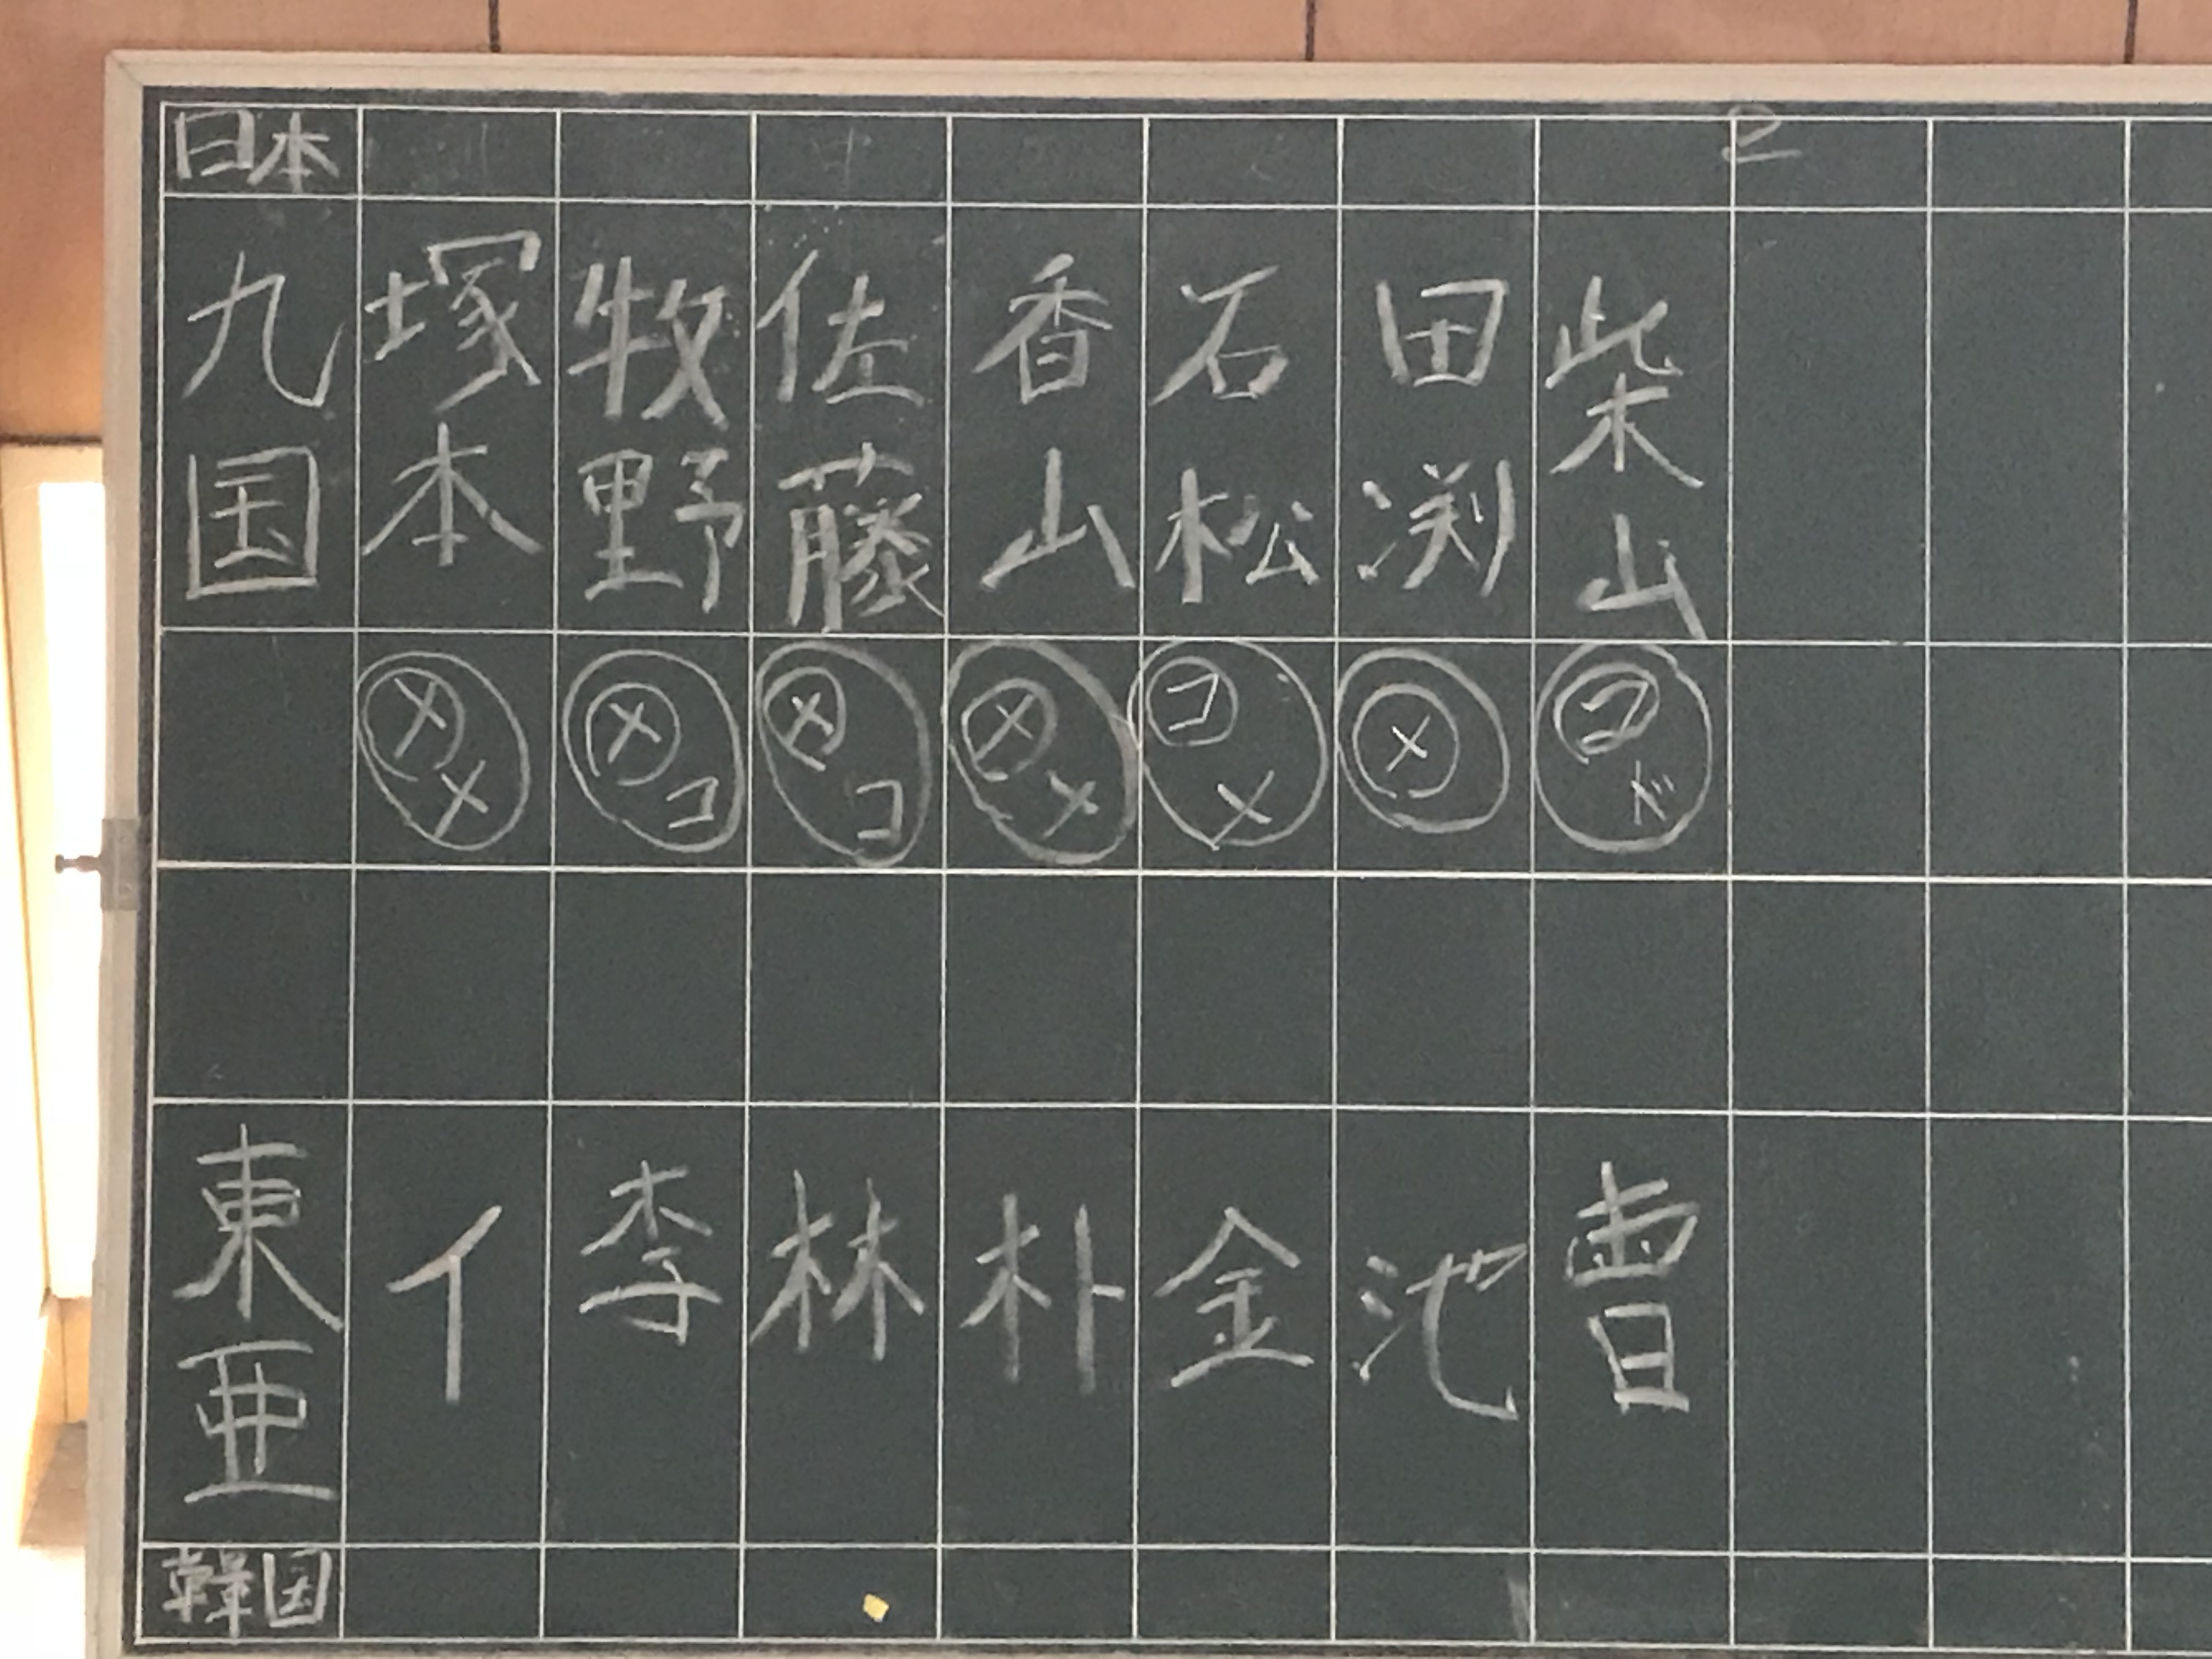 日本
九国 塚本 牧野 佐藤 香山 石松 田渕 柴山
メメ メコ メコ メメ コメ メ コド
東亜 イ 李 林 朴 金 池 曹
韓国